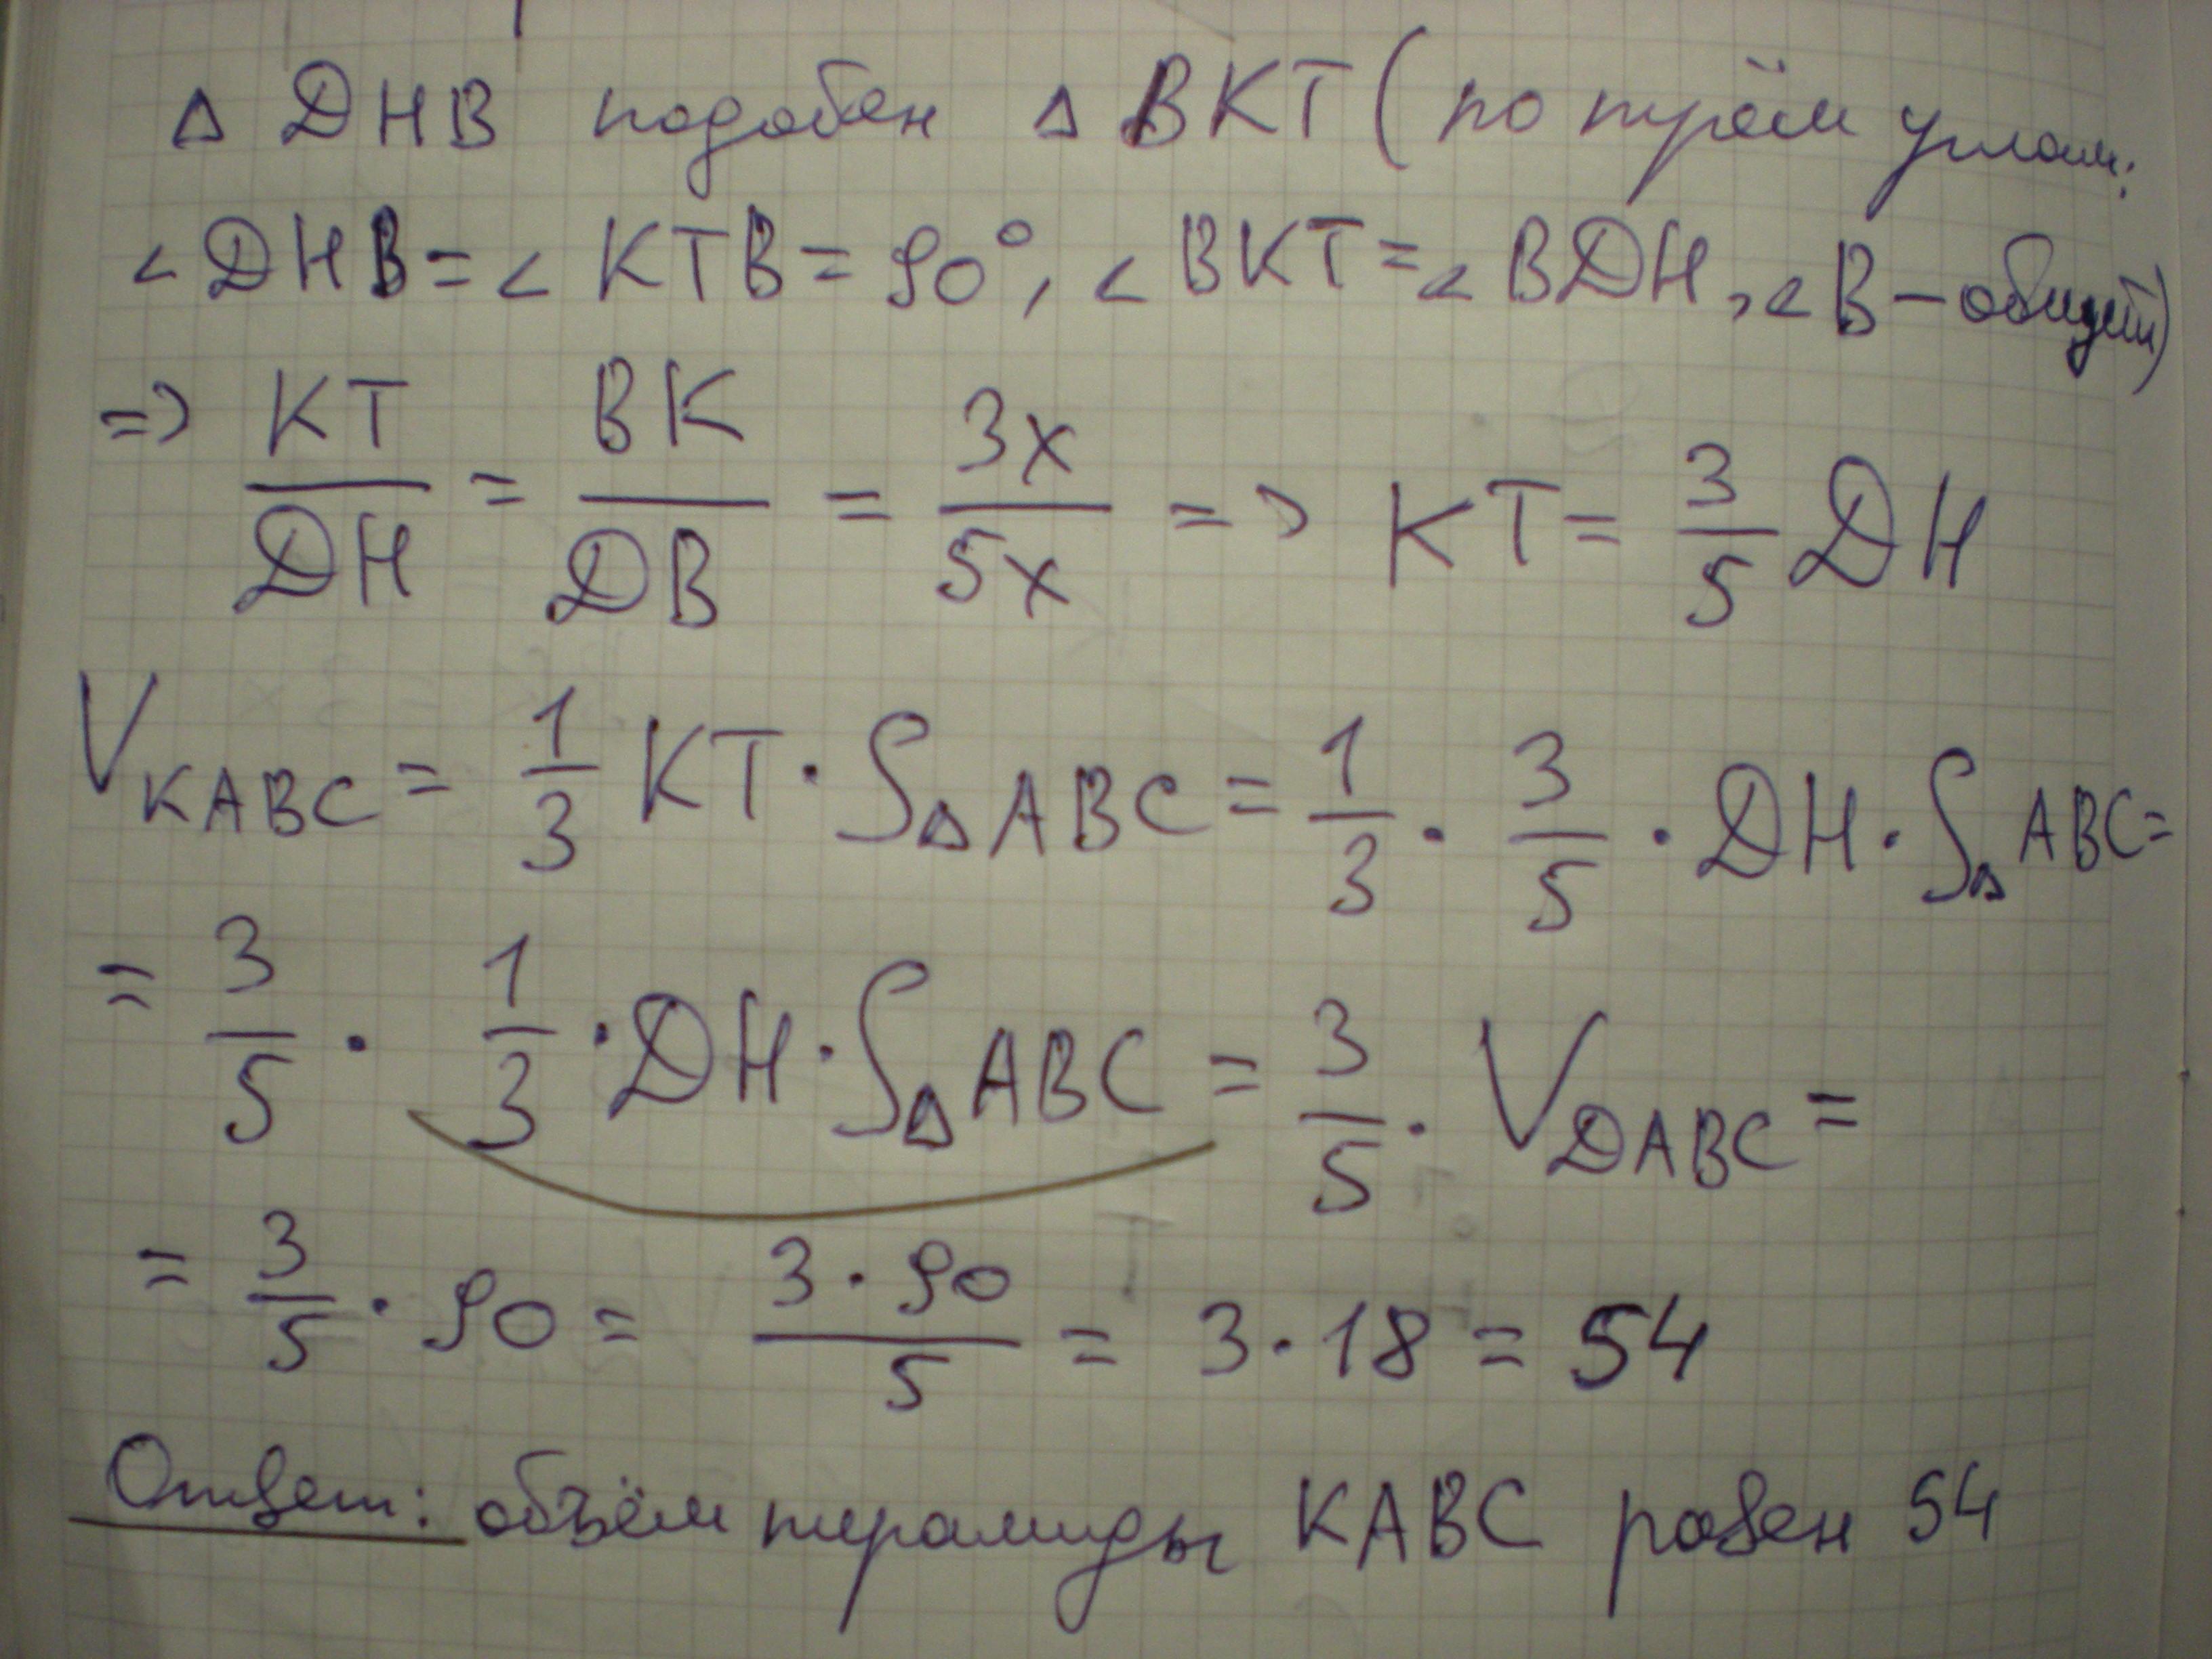 Δ DHB подобен Δ BKT (по трём углам:
∠DHB = ∠KTB = 90°, ∠BKT = ∠BDH, ∠B – общий)
=> KT/DH = BK/DB = 3x/5x => KT = 3/5 DH
V_KABC = 1/3 KT · S_ΔABC = 1/3 · 3/5 · DH · S_ΔABC =
= 3/5 · 1/3 · DH · S_ΔABC = 3/5 · V_DABC =
= 3/5 · 90 = 3·90/5 = 3·18 = 54
Ответ: объём пирамиды KABC равен 54